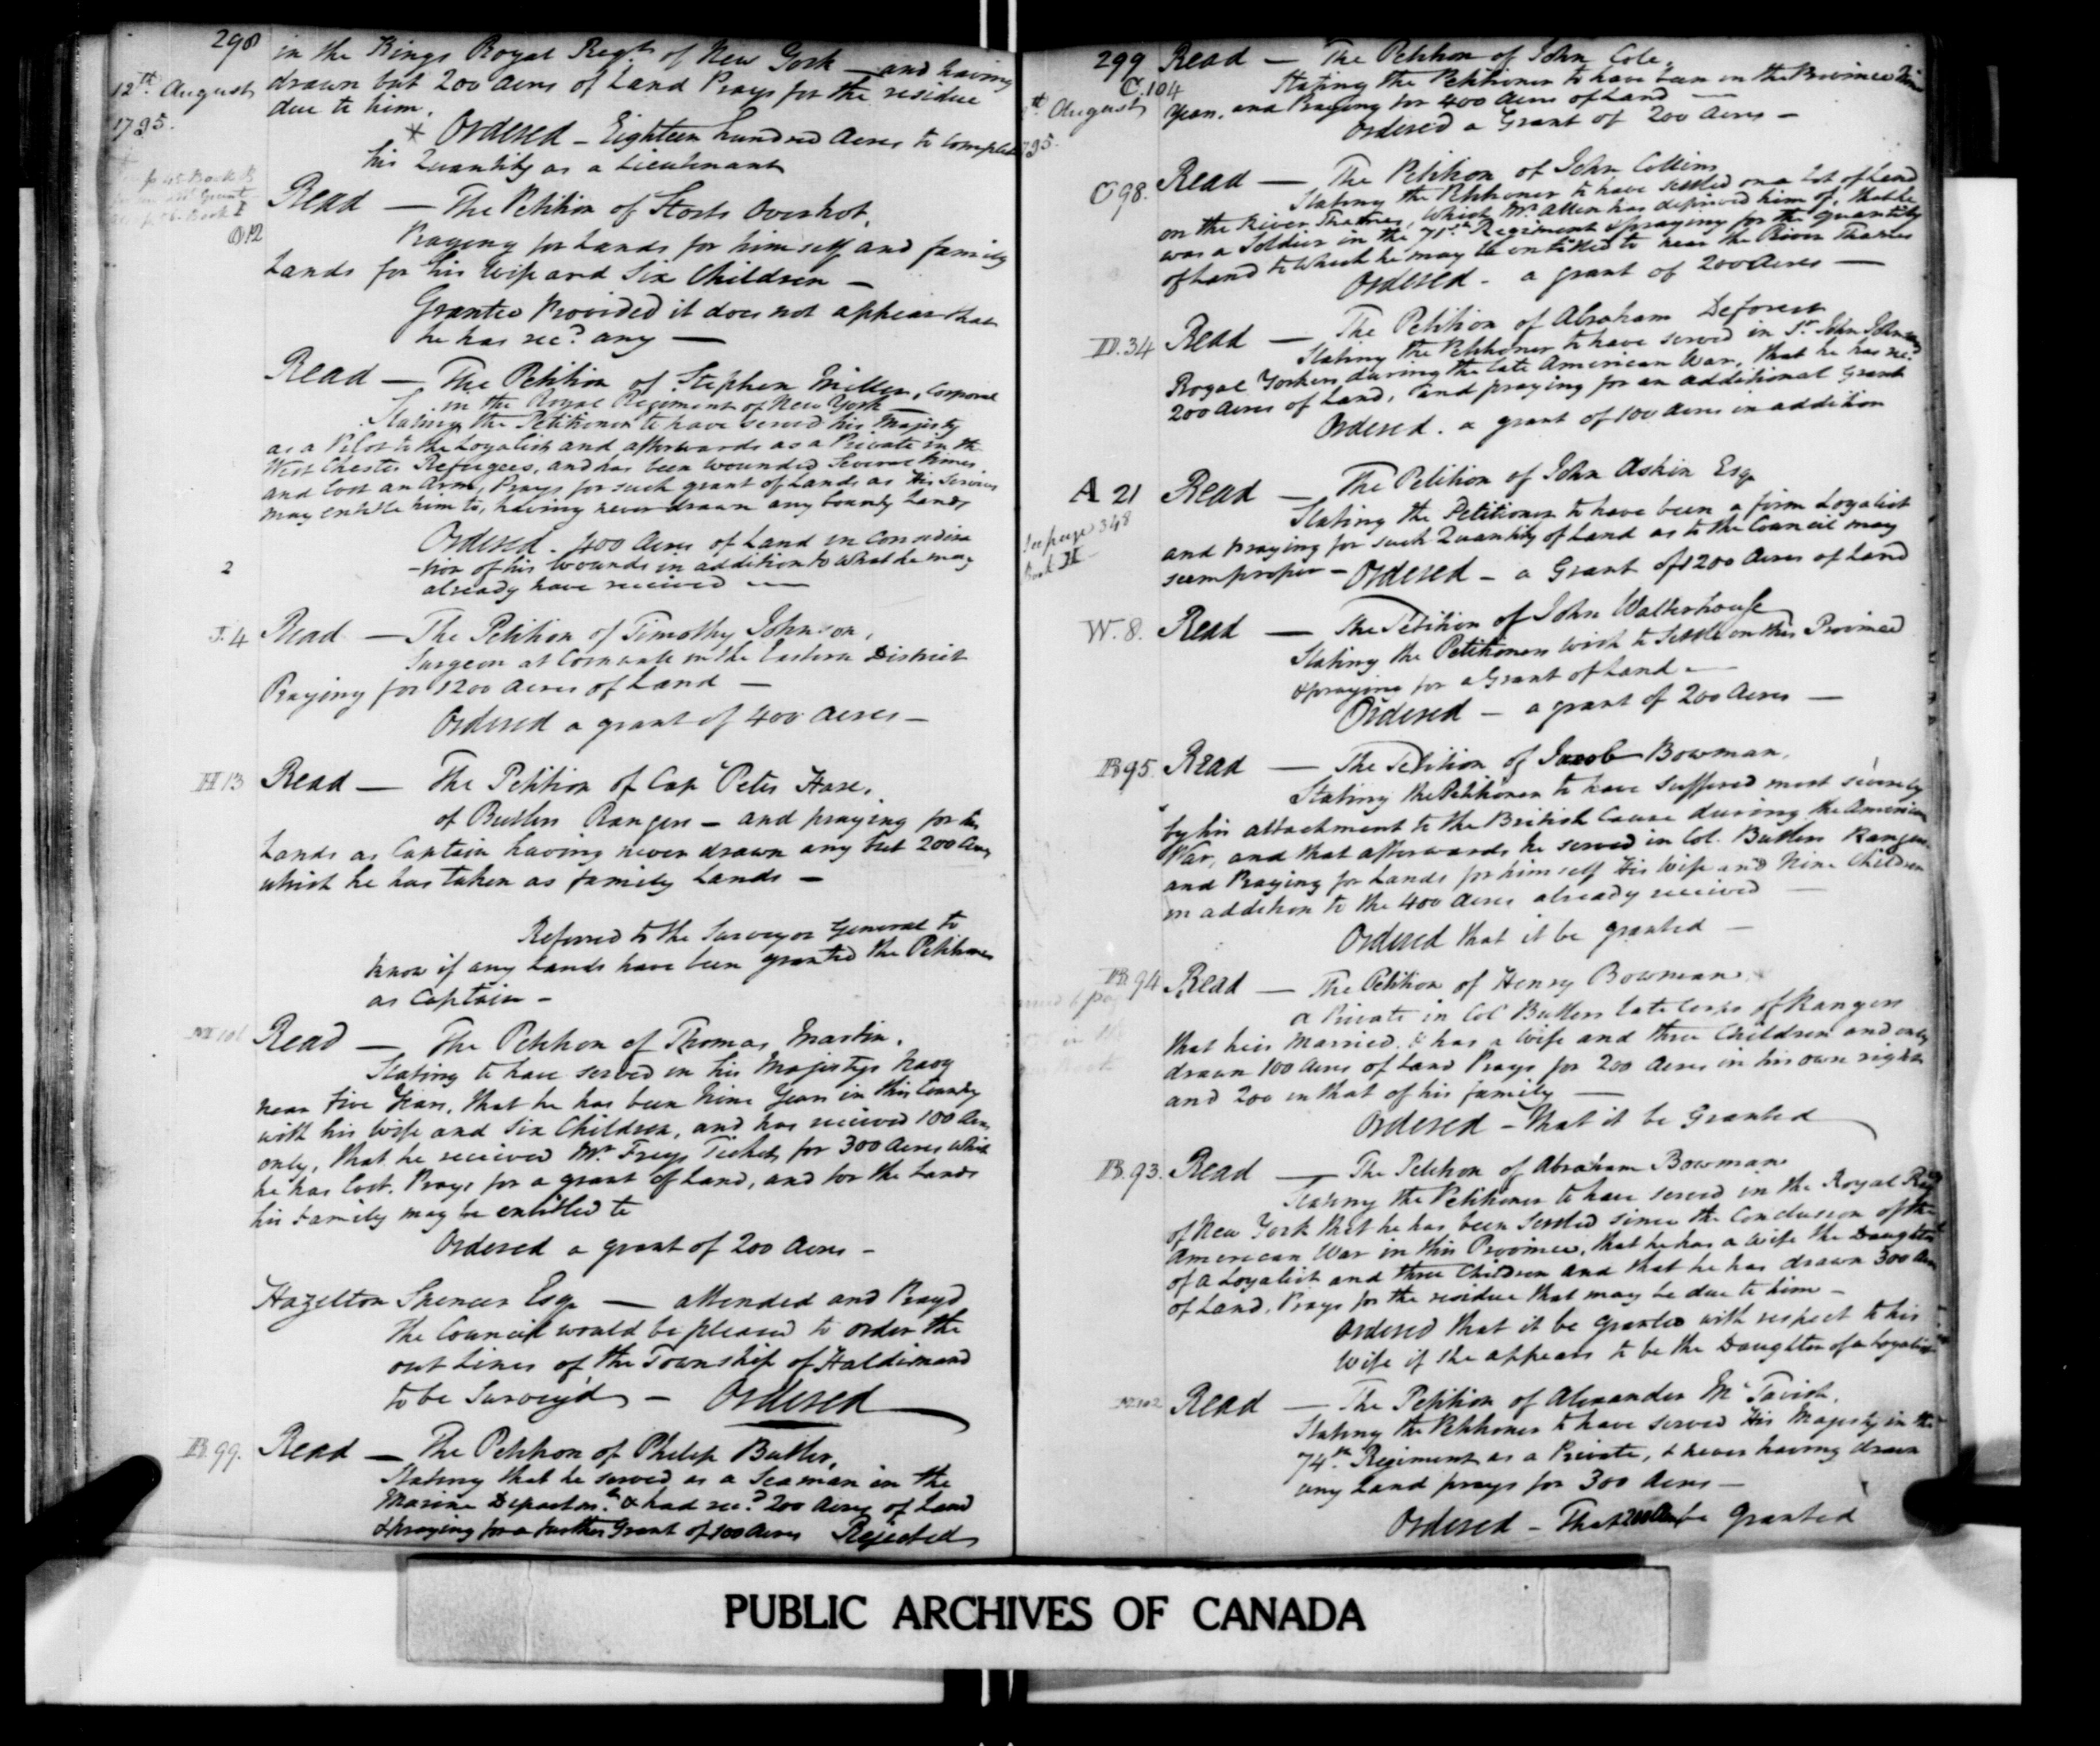 298
12th August
1795.
in the Kings Royal Regt. of New York — and having
drawn but 200 acres of Land Prays for the residue
due to him.
* Ordered – Eighteen hundred Acres to complete
his Quantity as a Lieutenant
O 12
Read — The Petition of Overhot,
Praying for Lands for himself and family
Lands for his Wife and Six Children –
Granted Provided it does not appear that
he has recd. any —
Read — The Petition of Stephen Miller, Corporal
in the Royal Regiment of New York —
Stating the Petitioner to have served his Majesty
as a Pilot to the Loyalists and afterwards as a Private in the
West Chester Refugees, and has been wounded Several times
and lost an Arm, Prays for such grant of Lands as his Services
may entitle him to, having never drawn any bounty Lands
2
Ordered. 400 Acres of Land in Considera
-tion of his wounds in addition to what he may
already have received —
J. 4
Read — The Petition of Timothy Johnson,
Surgeon at Cornwall in the Eastern District
Praying for 1200 Acres of Land —
Ordered a grant of 400 Acres –
H 13
Read — The Petition of Cap Peter Hare,
of Butlers Rangers – and praying for his
Lands as Captain having never drawn any but 200 Acres
which he has taken as family Lands –
Referred to the Surveyor General to
know if any Lands have been granted the Petitioner
as Captain –
M 101
Read — The Petition of Thomas Martin.
Stating to have served in his Majestys Navy
near Five Years, that he has been Nine Years in this Country
with his Wife and Six Children, and has received 100 Acres
only, that he received Mr Freys Tickets for 300 Acres which
he has lost. Prays for a grant of Land, and for the Lands
his Family may be entitled to
Ordered a grant of 200 Acres –
Hazelton Spencer Esqr — attended and Pray'd
the Council would be pleased to order the
out Lines of the Township of Haldimand
to be Survey'd – Ordered
B 99.
Read — The Petition of Philip Butler,
Stating that he served as a Seaman in the
Marine Departmt. & had recd. 200 Acres of Land
& praying for a further Grant of 100 Acres Rejected
299
August
C. 104
Read — The Petition of John Cole,
Stating the Petitioner to have been in the Province Nine
Years, and Praying for 400 Acres of Land —
Ordered a Grant of 200 Acres –
C 98.
Read — The Petition of John Collins
Stating the Petitioner to have settled on a Lot of Land
on the River Thames, which Mr. Allen has deprived him of, that he
was a Soldier in the 71st Regiment & praying for the quantity
of Land to which he may be entitled to near the River Thames
Ordered – a grant of 200 Acres —
D. 34
Read — The Petition of Abraham Deforest
Stating the Petitioner to have served in Sr. John Johnsons
Royal Yorkers, during the late American War, that he has recd.
200 Acres of Land, and praying for an additional Grant
Ordered. a grant of 100 Acres in addition
A 21
See page 348
Read — The Petition of John Askin Esqr
Stating the Petitioner to have been a firm Loyalist
and praying for such Quantity of Land as to the Council may
seem proper – Ordered – a Grant of 1200 Acres of Land
W. 8.
Read — The Petition of John Walterhouse
Stating the Petitioners wish to Settle on this Province
& praying for a Grant of Land —
Ordered – a grant of 200 Acres —
B 95
Read — The Petition of Jacob Bowman,
Stating the Petitioner to have suffered most severely
by his attachment to the British Cause during the American
War, and that afterwards he served in Col. Butlers Rangers
and Praying for Lands for himself His Wife and Nine Children
in addition to the 400 Acres already received —
Ordered that it be granted —
B 94
Read — The Petition of Henry Bowman
a Private in Col Butlers late Corps of Rangers
that he is Married, & has a Wife and three Children and only
drawn 100 Acres of Land Prays for 200 Acres in his own right
and 200 in that of his family —
Ordered – That it be Granted
B. 93.
Read — The Petition of Abraham Bowman
Stating the Petitioner to have served in the Royal Regt
of New York that he has been Settled since the Conclusion of the
American War in this Province, that he has a Wife the Daughter
of a Loyalist and three Children and that he has drawn 300 Acres
of Land, Prays for the residue that may be due to him –
Ordered that it be granted with respect to his
Wife if she appears to be the Daughter of a Loyalist
M 102
Read — The Petition of Alexander Mc Tavish,
Stating the Petitioner to have served His Majesty in the
74th Regiment as a Private, & never having drawn
any Land prays for 300 Acres —
Ordered – That 200 Acres be Granted
PUBLIC ARCHIVES OF CANADA